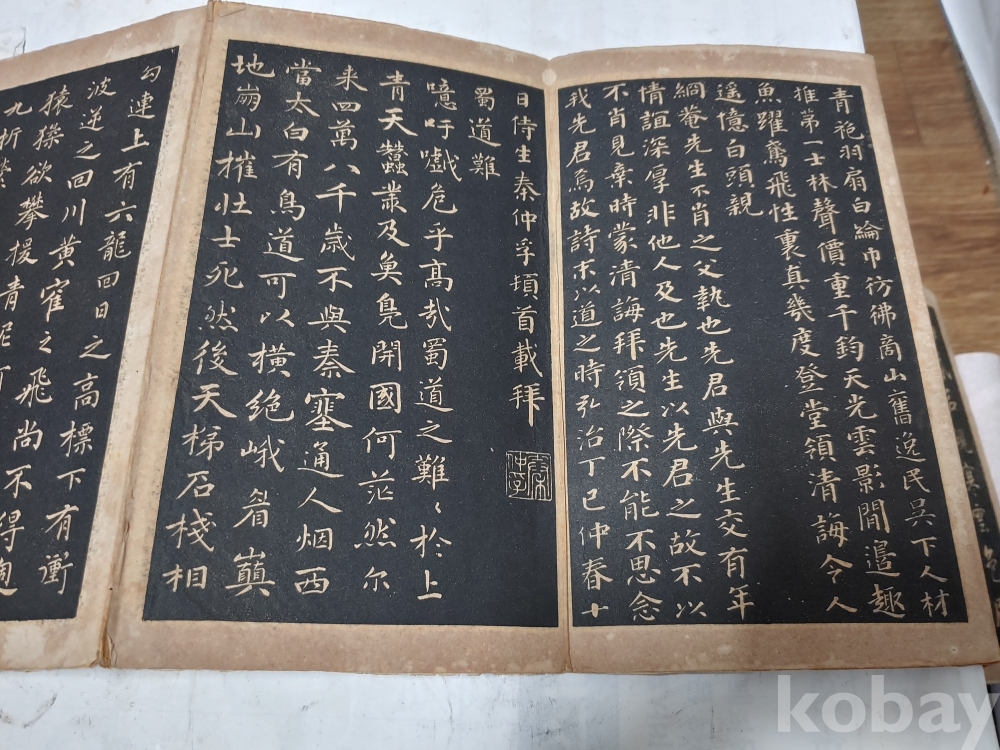 青袍羽扇白綸巾彷彿商山舊逸民吳下人材
推第一士林聲價重千鈞天光雲影閒邊趣
魚躍鳶飛性裏真幾度登堂領清誨令人
遙憶白頭親
網菴先生不肖之父執也先君與先生交有年
情誼深厚非他人及也先生以先君之故不以
不肖見棄時蒙清誨拜領之際不能不思念
我先君焉故詩末以道之時弘治丁巳仲春十
日侍生秦仲孚頓首載拜
秦仲孚
蜀道難
噫吁嚱危乎高哉蜀道之難〻於上
青天蠶叢及魚鳧開國何茫然尔
來四萬八千歲不與秦塞通人烟西
當太白有鳥道可以橫絶峨眉巔
地崩山摧壯士死然後天梯石棧相
勾連上有六龍回日之高標下有衝
波逆之回川黄寉之飛尚不得
猿猱欲攀援青泥何
九折縈
kobay